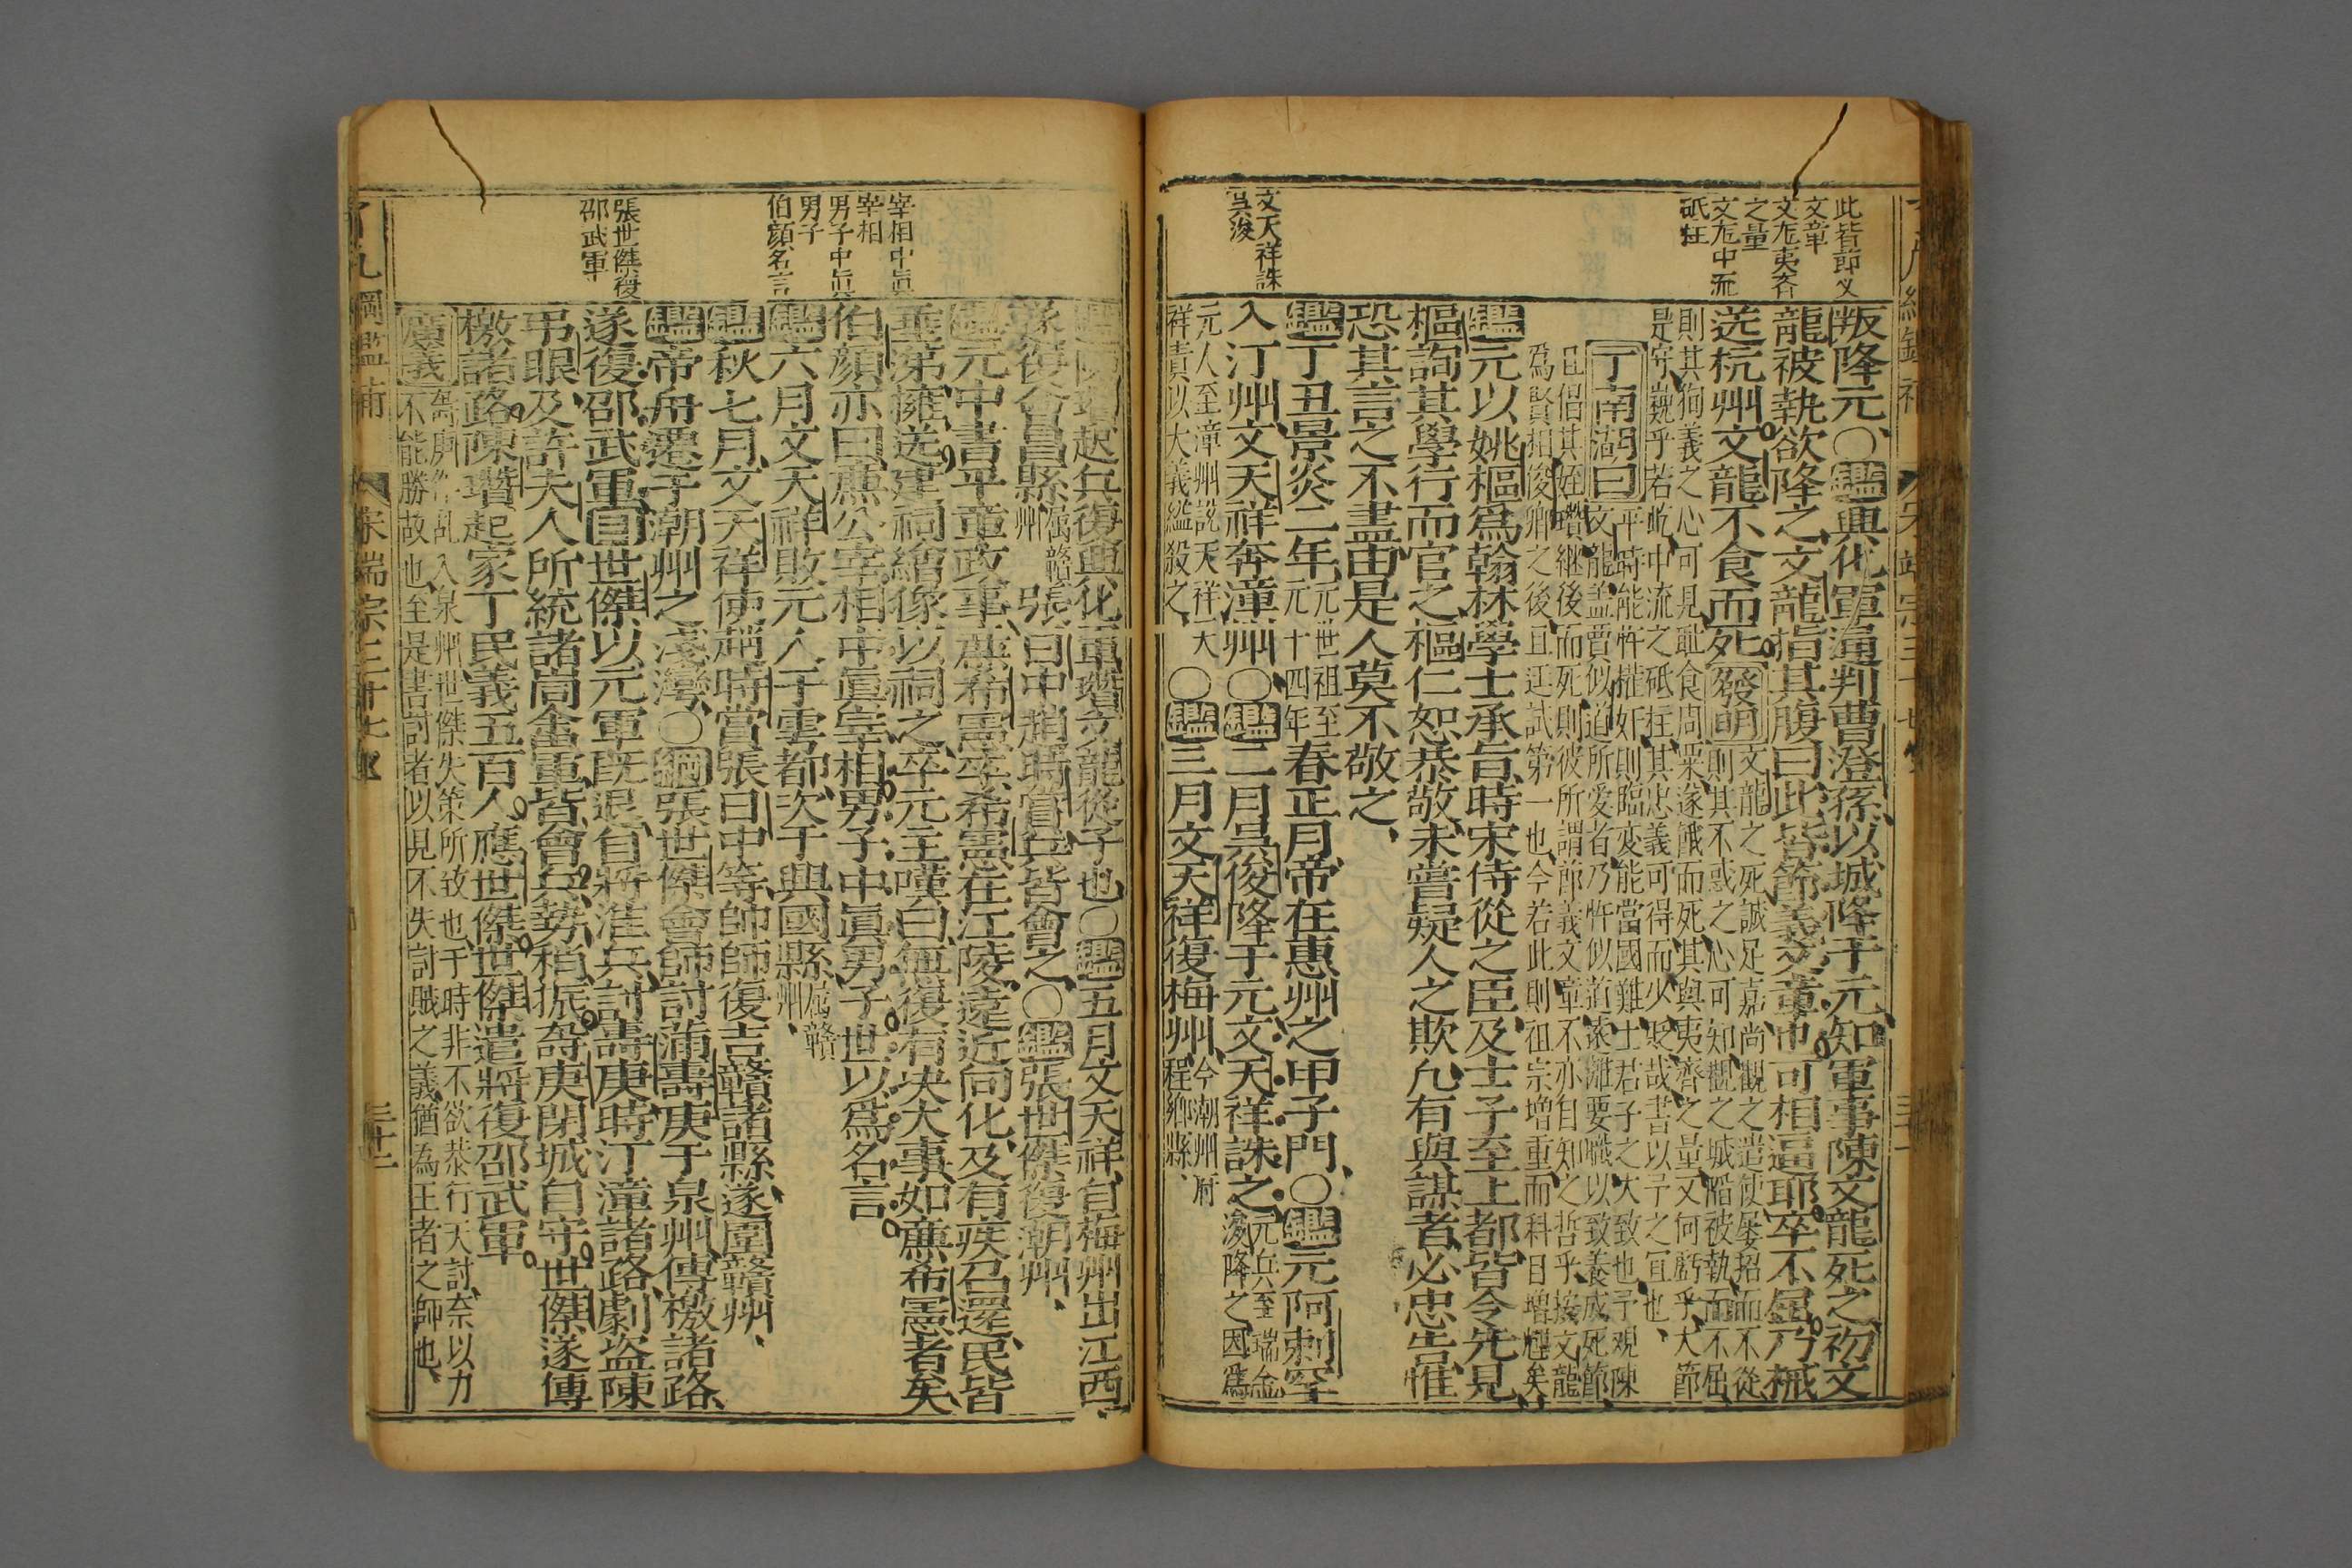 此皆節义
文章
文龙夷齐
之量
文龙中流
砥柱
文天祥誅
吳浚
叛降元、〇鑑興化軍通判曹澄孫以城降于元、知軍事陳文龍死之、初文
龍被執、欲降之、文龍指其腹曰、此皆節義文章也、可相逼耶、卒不屈、乃械
送杭州、文龍不食而死、發明文龍之死、誠足嘉尚、觀之遣使屡招而不從
則其不惑之心可知、觀之城陷被執、而不屈、
則其狥義之心可見、耻食周粟、遂餓而死、其與夷齊之量、又何虧乎、大節
是守、巍乎若屹中流之砥柱、其忠義可得而少貶哉、書以予之宜也、
丁南湖曰平時能忤權奸、則臨变能當國難、士君子之大致也、予观陳
文龍、盖賈似道所愛者、乃忤似道、遂離要職、以致養成死節、
且侣其姪瓚継後而死、則彼所謂節義文章、不亦自知之哲乎、按文龍
爲賢相俊卿之後、且廷試第一也、今若此、則祖宗增重、而科目增輝矣、
鑑元以姚樞爲翰林學士承旨、時宋侍從之臣、及士子至上都、皆令先見
樞、詢其學行而官之、樞仁恕恭敬、未嘗疑人之欺、凢有與謀者、必忠告、惟
恐其言之不盡、由是人莫不敬之、
鑑丁丑景炎二年、元世祖至
元十四年春正月、帝在惠州之甲子門、〇鑑元阿剌罕
入汀州、文天祥奔漳州、〇鑑二月、吳浚降于元、文天祥誅之、元兵至瑞金
浚降之、因爲
元人至漳州說天祥、天
祥責以大義、縊殺之、〇鑑三月、文天祥復梅州、今潮州府
程鄉縣、
宰相中眞
宰相
男子中眞
男子
伯顔名言
張世傑復
邵武軍
鑑陳瓚起兵復興化軍、瓚文龍從子也、〇鑑五月、文天祥自梅州出江西、
遂復會昌縣、属贛
州張曰中、趙時賞兵皆會之、〇鑑張世傑復潮州、
鑑元中書平章政事廉希憲卒、希憲在江陵、遠近向化、及有疾召還、民皆
垂涕擁送、建祠繪像以祠之、卒、元主嘆曰、無復有决大事如廉希憲者矣、
伯顔亦曰、廉公宰相中眞宰相、男子中眞男子、世以爲名言。
鑑六月、文天祥敗元人于雩都、次于興國縣、属贛
州、
鑑秋七月、文天祥使趙時當、張曰中等、帥師復吉贛諸縣、遂圍贛州、
鑑帝舟遷于潮州之淺灣、〇綱張世傑會師討蒲壽庚于泉州、傳檄諸路、
遂復邵武軍、目世傑以元軍旣退、自將淮兵、討壽庚、時汀漳諸路、劇盜陳
弔眼、及許夫人所統諸峒畲軍、皆會兵、勢稍振、壽庚閉城自守、世傑遂傳
檄諸路、陳瓚起家丁民義五百人、應世傑、世傑遣將復邵武軍。
廣義壽庚作乱入泉州、世傑失策所致也、于時非不欲恭行天討、奈以力
不能勝故也、至是書討者、以見不失討賊之義、猶為王者之師也、
了凡綱鑑補　宋端宗三十七卷　三十二